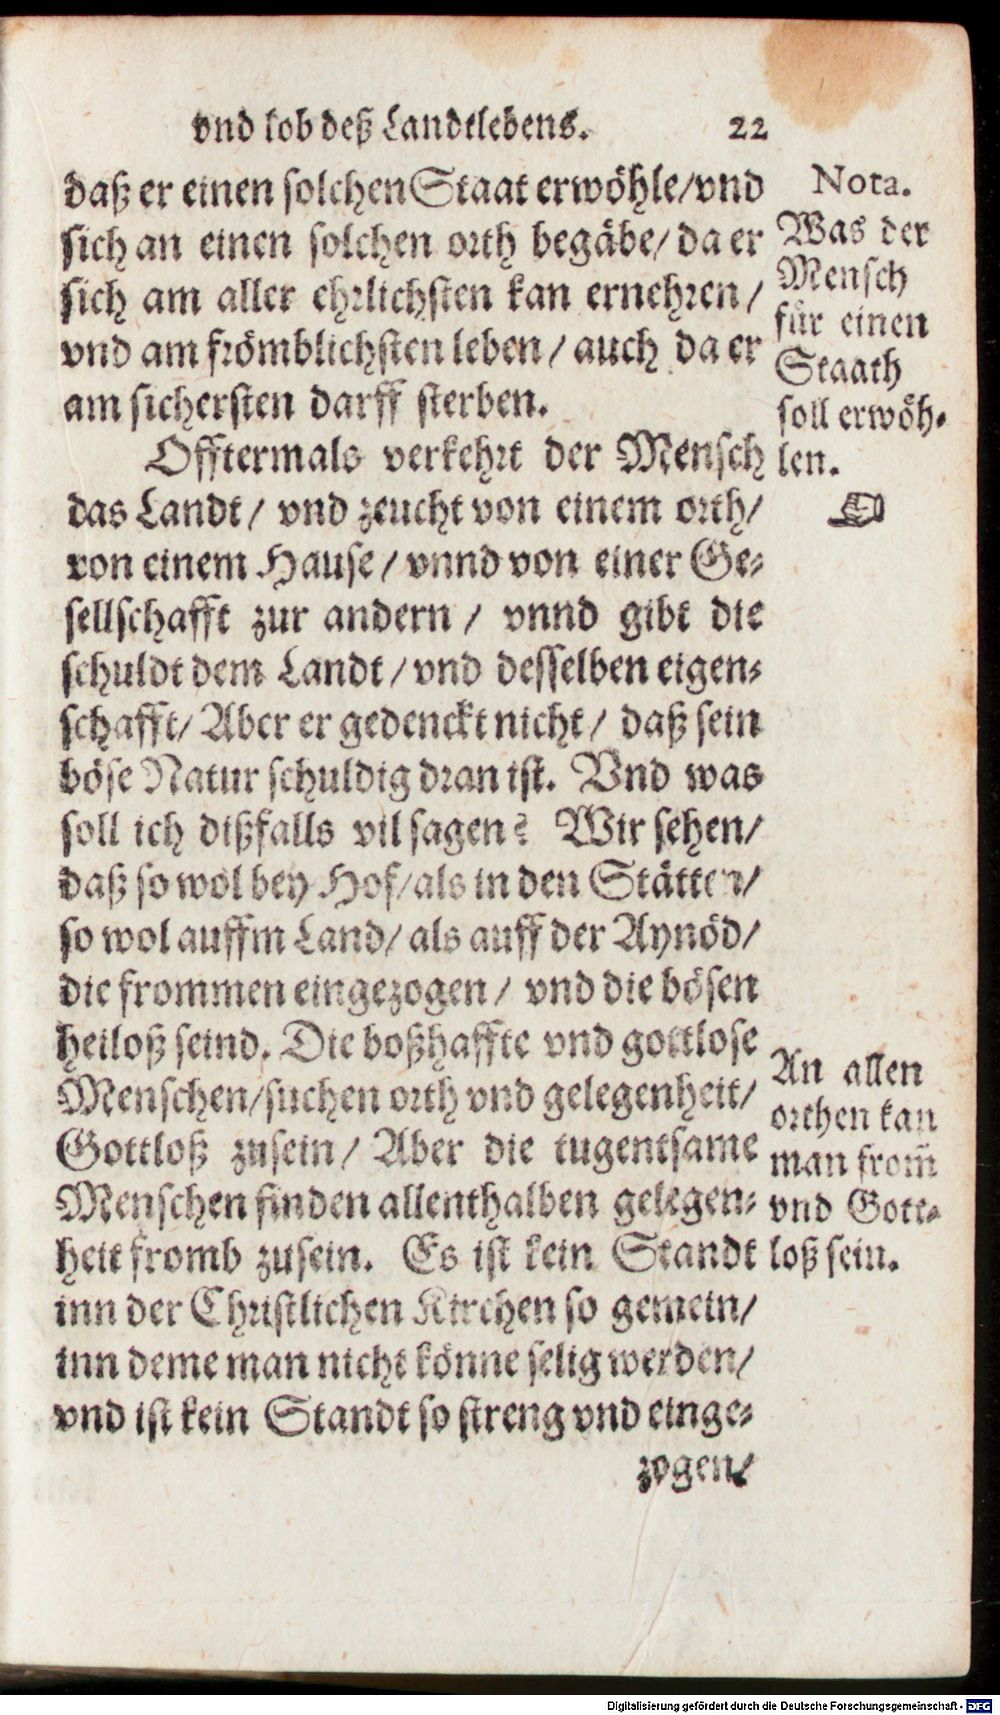 vnd lob deß Landtlebens. 22
daß er einen solchen Staat erwöhle/vnd
sich an einen solchen orth begäbe/ da er
sich am aller ehrlichsten kan ernehren/
vnd am frömblichsten leben/ auch da er
am sichersten darff sterben.
Offtermals verkehrt der Mensch
das Landt/ vnd zeucht von einem orth/
von einem Hause/ vnnd von einer Ge-
sellschafft zur andern/ vnnd gibt die
schuldt dem Landt/ vnd desselben eigen-
schafft/ Aber er gedenckt nicht/ daß sein
böse Natur schuldig dran ist. Vnd was
soll ich dißfalls vil sagen? Wir sehen/
daß so wol bey Hof/als in den Stätten/
so wol auffm Land/ als auff der Aynöd/
die frommen eingezogen/ vnd die bösen
heiloß seind. Die boßhaffte vnd gottlose
Menschen/suchen orth vnd gelegenheit/
Gottloß zusein/ Aber die tugentsame
Menschen finden allenthalben gelegen-
heit fromb zusein. Es ist kein Standt
inn der Christlichen Kirchen so gemein/
inn deme man nicht könne selig werden/
vnd ist kein Standt so streng vnd einge-
zogen/
Nota.
Was der
Mensch
für einen
Staath
soll erwöh-
len.
An allen
orthen kan
man from̃
vnd Gott-
loß sein.
Digitalisierung gefördert durch die Deutsche Forschungsgemeinschaft - DFG